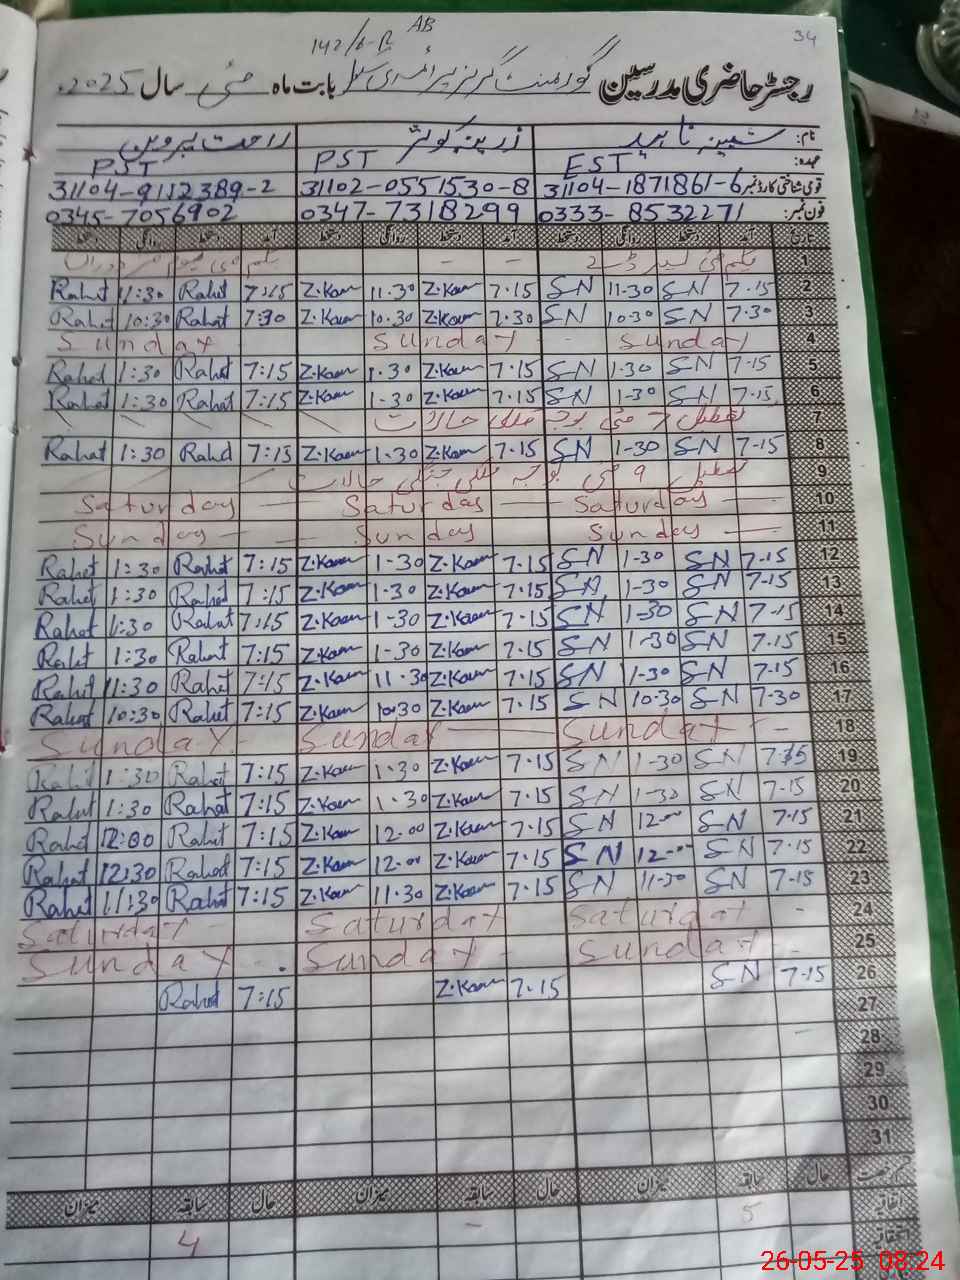 34
142/6-R AB
رجسٹر حاضری مدرسین گورنمنٹ گرلز پرائمری سکول بابت ماہ مئی سال 2025
نام: شبینہ ناہید زرینہ کوثر راحت پروین
عہدہ: EST PST PST
قومی شناختی کارڈ نمبر 31104-1871861-6 31102-0551530-8 31104-9112389-2
فون نمبر: 0333-8532271 0347-7318299 0345-7056902
تاریخ آمد دستخط روانگی دستخط آمد دستخط روانگی دستخط آمد دستخط روانگی دستخط
1 یکم مئی - - یکم مئی
2 7-15 SN 11-30 SN 7-15 Z.Kaur 11.30 Z.Kaur 7:15 Rahat 11:30 Rahat
3 7-30 SN 10-30 SN 7-30 Z.Kaur 10.30 Z.Kaur 7:30 Rahat 10:30 Rahat
4 Sunday Sunday Sunday
5 7-15 SN 1-30 SN 7-15 Z.Kaur 1.30 Z.Kaur 7:15 Rahat 1:30 Rahat
6 7-15 SN 1-30 SN 7-15 Z.Kaur 1-30 Z.Kaur 7:15 Rahat 1:30 Rahat
7 تعطیل 7 مئی بوجہ ملکی حالات
8 7-15 SN 1-30 SN 7-15 Z.Kaur 1.30 Z.Kaur 7:15 Rahat 1:30 Rahat
9 تعطیل 9 مئی بوجہ ملکی جنگی حالات
10 Saturday Saturday Saturday
11 Sunday Sunday Sunday
12 7-15 SN 1-30 SN 7-15 Z.Kaur 1-30 Z.Kaur 7:15 Rahat 1:30 Rahat
13 7-15 SN 1-30 SN 7-15 Z.Kaur 1-30 Z.Kaur 7:15 Rahat 1:30 Rahat
14 7-15 SN 1-30 SN 7-15 Z.Kaur 1-30 Z.Kaur 7:15 Rahat 1:30 Rahat
15 7-15 SN 1-30 SN 7-15 Z.Kaur 1-30 Z.Kaur 7:15 Rahat 1:30 Rahat
16 7-15 SN 1-30 SN 7-15 Z.Kaur 11.30 Z.Kaur 7:15 Rahat 11:30 Rahat
17 7-30 SN 10-30 SN 7-15 Z.Kaur 10.30 Z.Kaur 7:15 Rahat 10:30 Rahat
18 Sunday Sunday Sunday
19 SN 1-30 SN 7-15 Z.Kaur 1.30 Z.Kaur 7:15 Rahat 1:30 Rahat
20 7-15 SN 1-30 SN 7-15 Z.Kaur 1.30 Z.Kaur 7:15 Rahat 1:30 Rahat
21 7-15 SN 12-00 SN 7-15 Z.Kaur 12-00 Z.Kaur 7:15 Rahat 12:00 Rahat
22 7-15 SN 12-00 SN 7-15 Z.Kaur 12-00 Z.Kaur 7:15 Rahat 12:30 Rahat
23 7-15 SN 11-30 SN 7-15 Z.Kaur 11.30 Z.Kaur 7:15 Rahat 11:30 Rahat
24 Saturday Saturday Saturday
25 Sunday Sunday Sunday
26 7-15 SN 7-15 Z.Kaur 7:15 Rahat
27
28
29
30
31
قسم رخصت حال سابقہ میزان حال سابقہ میزان حال سابقہ میزان
اتفاقیہ 5 - 4
استحقاقیہ
26-05-25 08:24